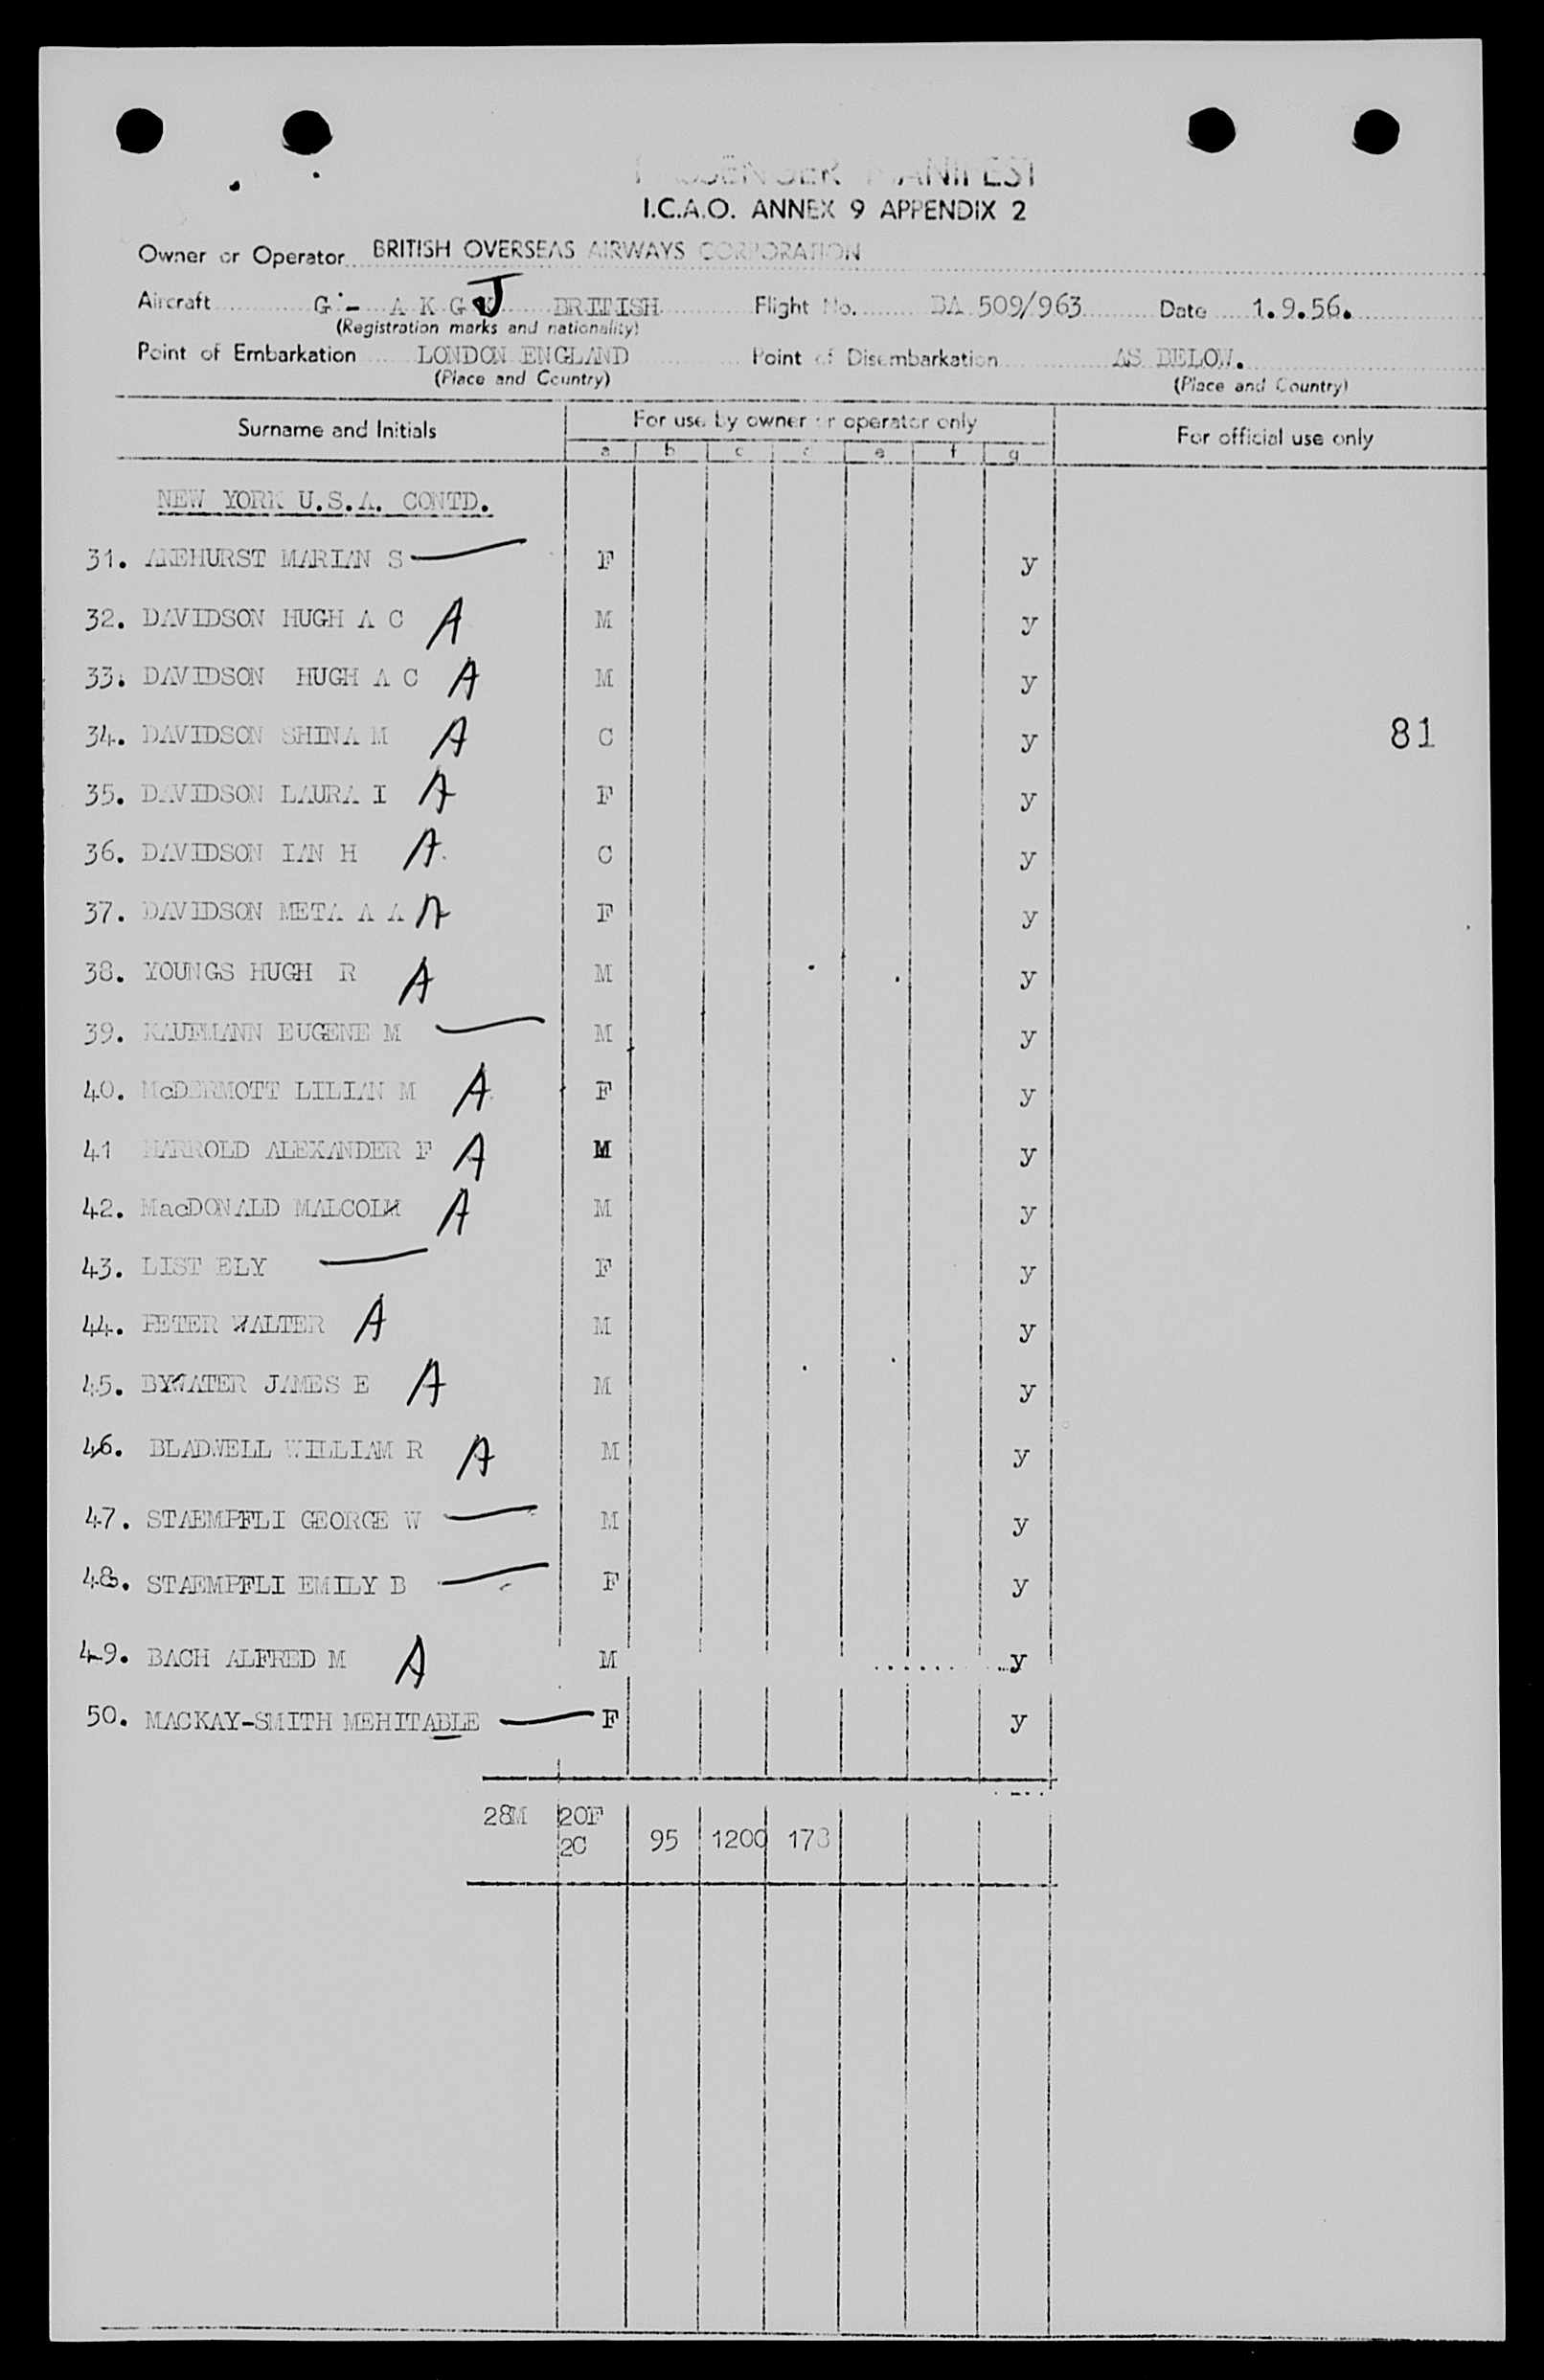 PASSENGER MANIFEST
I.C.A.O. ANNEX 9 APPENDIX 2
Owner or Operator BRITISH OVERSEAS AIRWAYS CORPORATION
Aircraft G - A K G J BRITISH Flight No. BA 509/963 Date 1.9.56.
(Registration marks and nationality)
Point of Embarkation LONDON ENGLAND Point of Disembarkation AS BELOW.
(Place and Country) (Place and Country)
Surname and Initials For use by owner or operator only For official use only
a b c d e f g
NEW YORK U.S.A. CONTD.
31. AKEHURST MARIAN S — F y
32. DAVIDSON HUGH A C A M y
33. DAVIDSON HUGH A C A M y
34. DAVIDSON SHINA M A C y 81
35. DAVIDSON LAURA I A F y
36. DAVIDSON IAN H A C y
37. DAVIDSON META A A A F y
38. YOUNGS HUGH R A M y
39. KAUFMANN EUGENE M — M y
40. McDERMOTT LILIAN M A F y
41 HARROLD ALEXANDER F A M y
42. MacDONALD MALCOLM A M y
43. LIST ELY — F y
44. PETER WALTER A M y
45. BYWATER JAMES E A M y
46. BLADWELL WILLIAM R A M y
47. STAEMPFLI GEORGE W — M y
48. STAEMPFLI EMILY B — F y
49. BACH ALFRED M A M y
50. MACKAY-SMITH MEHITABLE — F y
28M 20F
2C 95 1200 178